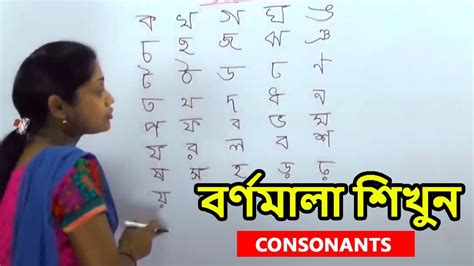 ক খ গ ঘ ঙ
চ ছ জ ঝ ঞ
ট ঠ ড ঢ ণ
ত থ দ ধ ন
প ফ ব ভ ম
য র ল ব শ
ষ স হ ড় ঢ়
য়
বর্ণমালা শিখুন
CONSONANTS